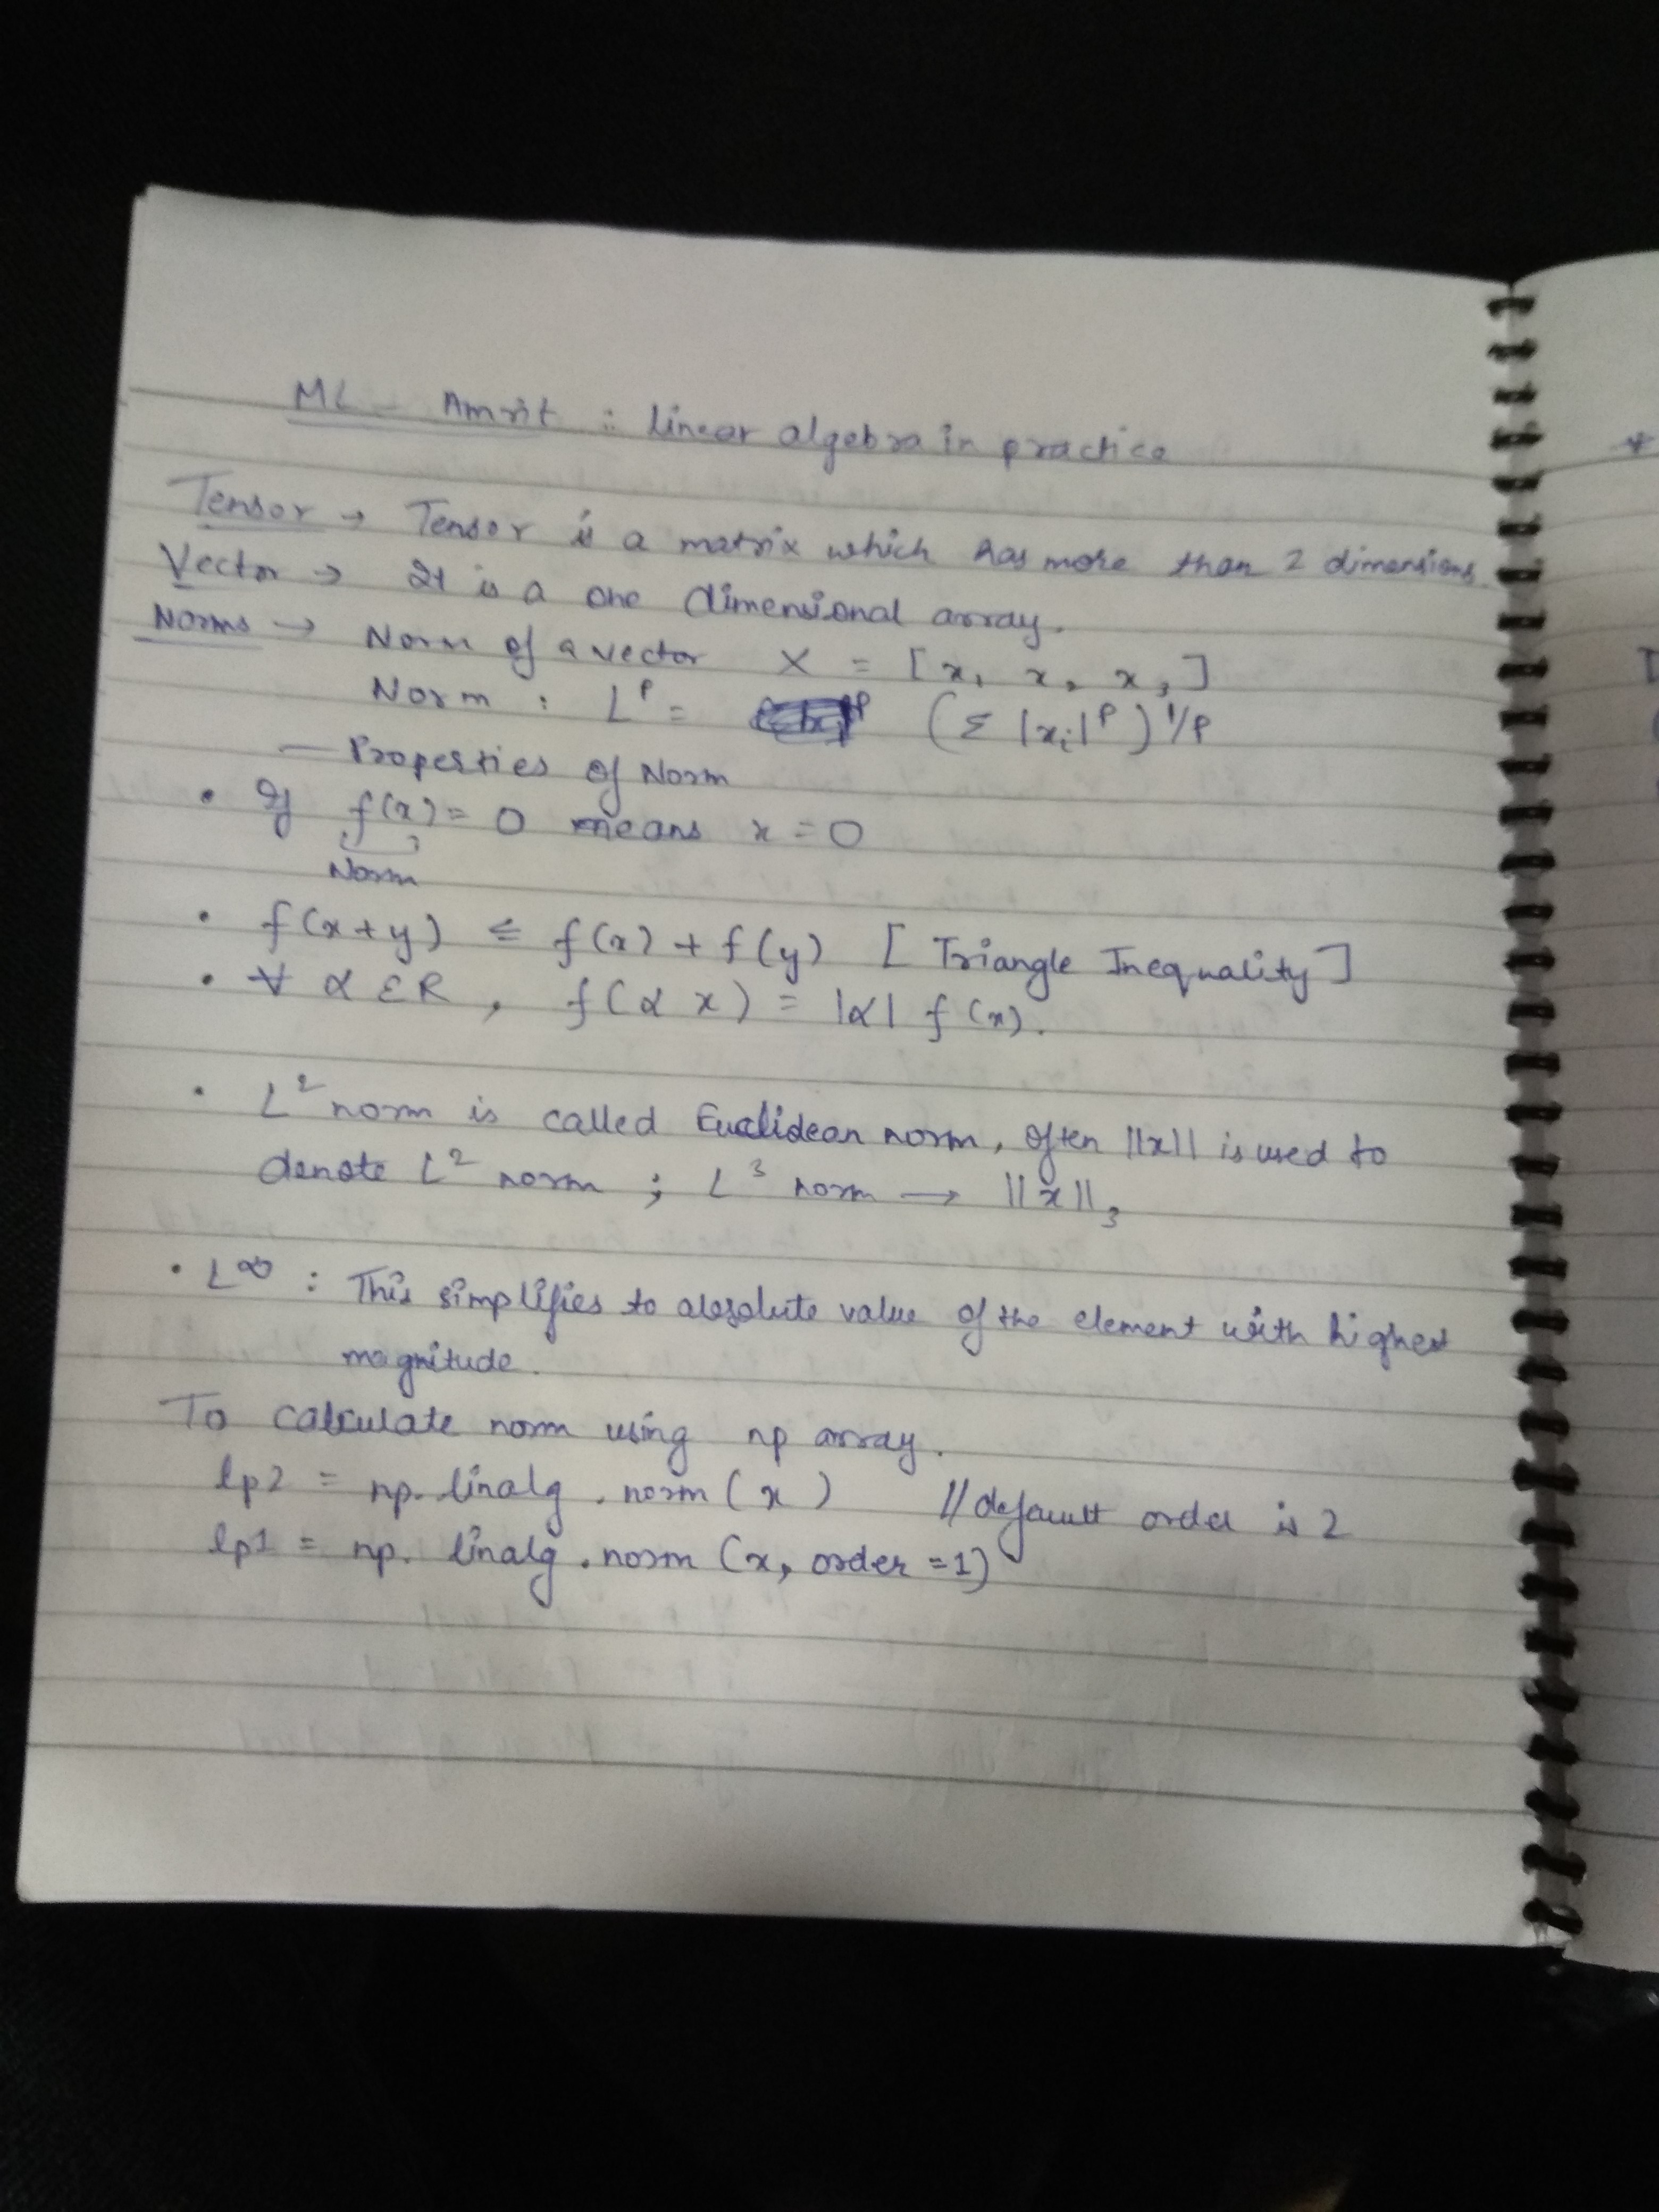 ML - Amrit : linear algebra in practice
Tensor → Tensor is a matrix which has more than 2 dimensions
Vector → It is a one dimensional array.
Norms → Norm of a vector X = [x₁ x₂ x₃]
Norm : Lᵖ = (Σ |xᵢ|ᵖ)^1/p
— Properties of Norm
• If f(x) = 0 means x = 0
Norm
• f(x+y) ≤ f(x) + f(y) [Triangle Inequality]
• ∀ α ε R , f(α x) = |α| f(x).
• L² norm is called Euclidean norm, often ||x|| is used to
denote L² norm ; L³ norm → ||x||₃
• L^∞ : This simplifies to absolute value of the element with highest
magnitude.
To calculate norm using np array.
lp2 = np. linalg . norm (x) // default order is 2
lp1 = np. linalg . norm (x, order = 1)